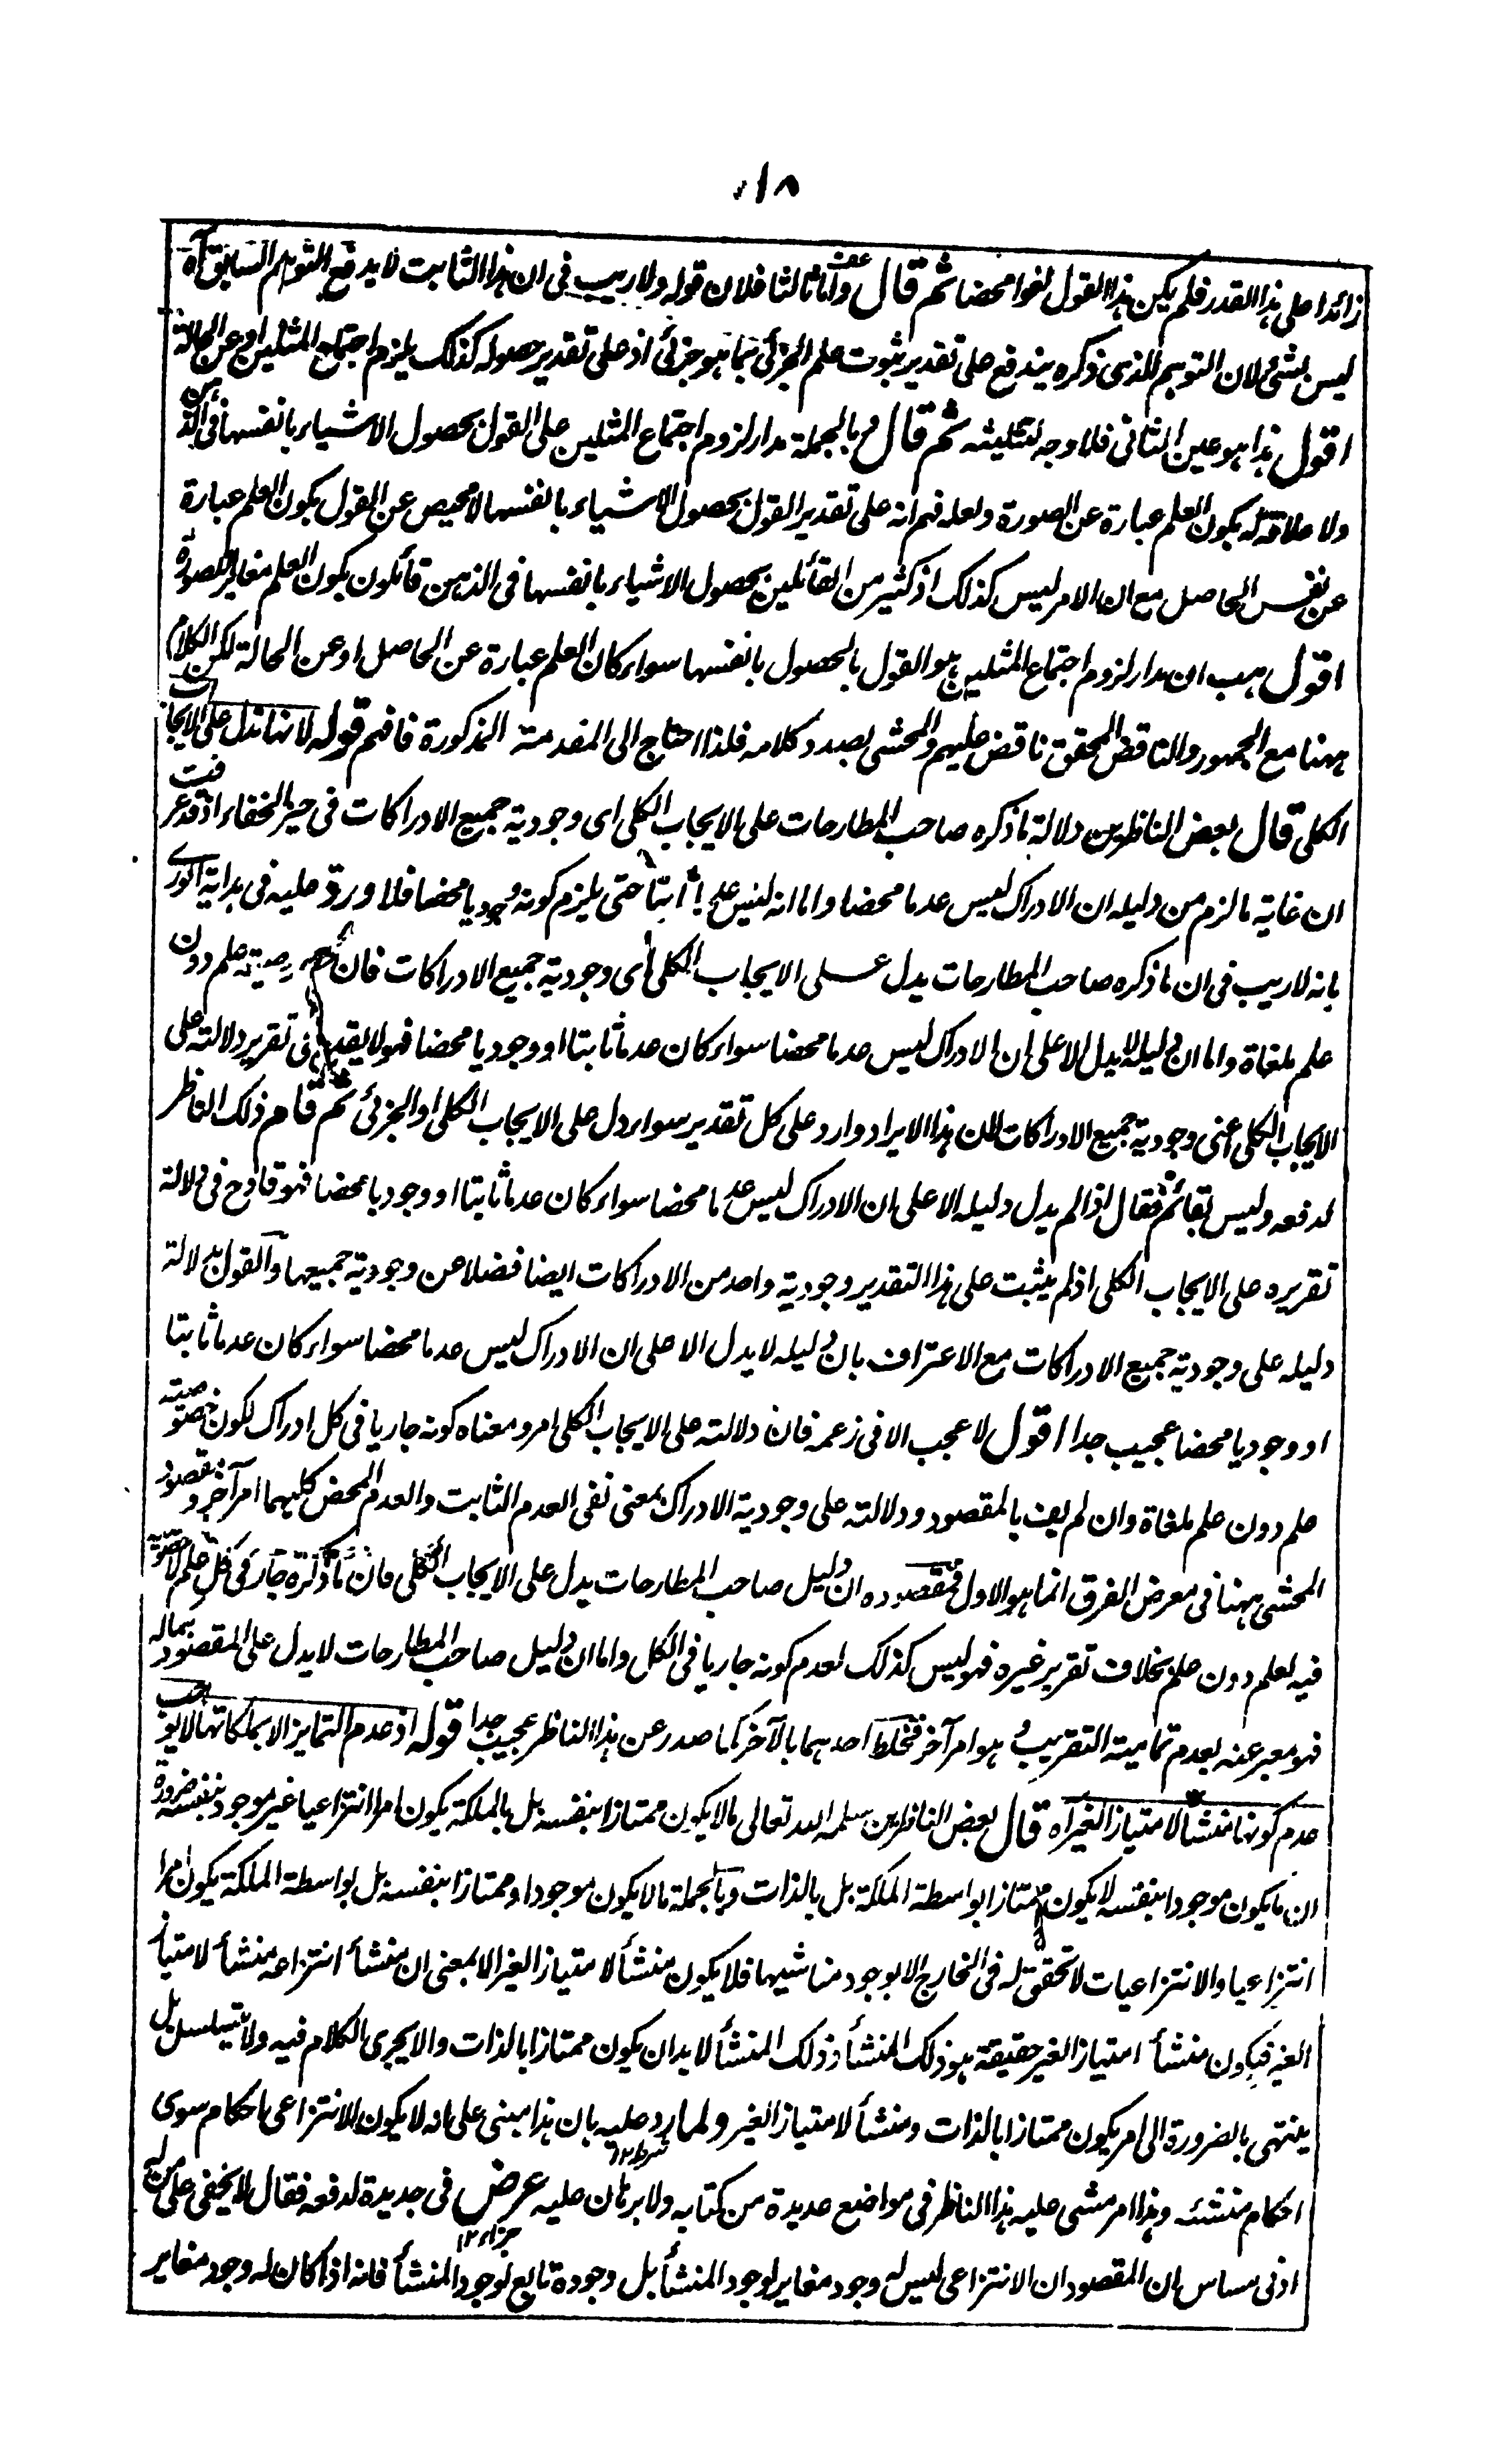 ١١٨
زائدا على هذا القدر فلم يكن هذا القول لغوا محضا ثم قال واما ثالثا فلان قوله ولا ريب فى ان هذا الثابت لا يدفع التوهم السابق آه
ليس بشئ لان التوهم الذى ذكره يندفع على تقدير ثبوت علم الجزئى بما هو جزئى اذ على تقدير حصوله كذلك يلزم اجتماع المثلين اوعن الحالة
اقول هذا هو عين الثانى فلا وجه لتثليثه ثم قال وبالجملة مدار لزوم اجتماع المثلين على القول بحصول الاشياء بانفسها فى الذهن
ولا علاقة له بكون العلم عبارة عن الصورة ولعله فهم انه على تقدير القول بحصول الاشياء بانفسها لا محيص عن القول بكون العلم عبارة
عن نفس الحاصل مع ان الامر ليس كذلك اذ كثير من القائلين بحصول الاشياء بانفسها فى الذهن قائلون بكون العلم مغايرا للصورة
اقول هب ان مدار لزوم اجتماع المثلين هو القول بالحصول بانفسها سواء كان العلم عبارة عن الحاصل او عن الحالة لكن الكلام
ههنا مع الجمهور والناقض المحقق ناقض عليهم والمحشى بصدد كلامه فلذا احتاج الى المقدمة المذكورة فافهم قوله لانها تدل على الايجاب
الكلى قال بعض الناظرين دلالة ما ذكره صاحب المطارحات على الايجاب الكلى اى وجودية جميع الادراكات فى حيز الخفاء اذ قد عرفت
ان غاية ما لزم من دليله ان الادراك ليس عدما محضا واما انه ليس عدما ثابتا حتى يلزم كونه وجوديا محضا فلا ورد عليه فى هداية الورى
بانه لا ريب فى ان ما ذكره صاحب المطارحات يدل على الايجاب الكلى اى وجودية جميع الادراكات فان خصوصية علم دون
علم ملغاة واما ان دليله لا يدل الا على ان الادراك ليس عدما محضا سواء كان عدما ثابتا او وجوديا محضا فهو لا يقدح فى تقرير دلالته على
الايجاب الكلى اعنى وجودية جميع الادراكات لان هذا الايراد وارد على كل تقدير سواء دل على الايجاب الكلى او الجزئى ثم قام ذلك الناظر
لدفعه وليس بقائم فقال اذا لم يدل دليله الا على ان الادراك ليس عدما محضا سواء كان عدما ثابتا او وجوديا محضا فهو قادح فى دلالة
تقريره على الايجاب الكلى اذ لم يثبت على هذا التقدير وجودية واحد من الادراكات ايضا فضلا عن وجودية جميعها والقول بدلالة
دليله على وجودية جميع الادراكات مع الاعتراف بان دليله لا يدل الا على ان الادراك ليس عدما محضا سواء كان عدما ثابتا
او وجوديا محضا عجيب جدا اقول لا عجب الا فى زعمه فان دلالته على الايجاب الكلى امر ومعناه كونه جاريا فى كل ادراك لكون خصوصية
علم دون علم ملغاة وان لم يف بالمقصود ودلالته على وجودية الادراك بمعنى نفى العدم الثابت والعدم المحض كليهما امر آخر ومقصود
المحشى ههنا فى معرض الفرق انما هو الاول فمقصوده ان دليل صاحب المطارحات يدل على الايجاب الكلى فان ما ذكره جار فى كل علم لا خصوصية
فيه لعلم دون علم بخلاف تقرير غيره فهو ليس كذلك لعدم كونه جاريا فى الكل واما ان دليل صاحب المطارحات لا يدل على المقصود بماله
فهو معبر عنه بعدم تمامية التقريب وهو امر آخر فخلط احدهما بالآخر كما صدر عن هذا الناظر عجيب جدا قوله اذ عدم التمايز الا بملكاتها لا يوجب
عدم كونها منشأ لامتياز الغير آه قال بعض الناظرين سلمه الله تعالى ما لا يكون ممتازا بنفسه بل بالملكة يكون امرا انتزاعيا غير موجود بنفسه ضرورة
ان ما يكون موجودا بنفسه لا يكون ممتازا بواسطة الملكة بل بالذات وبالجملة ما لا يكون موجودا وممتازا بنفسه بل بواسطة الملكة يكون امرا
انتزاعيا والانتزاعيات لا تحقق له فى الخارج الا بوجود مناشيها فلا يكون منشأ لامتياز الغير الا بمعنى ان منشأ انتزاعه منشأ لامتياز
الغير فيكون منشأ امتياز الغير حقيقة هو ذلك المنشأ وذلك المنشأ لابد ان يكون ممتازا بالذات والا يجرى الكلام فيه ولا يتسلسل بل
ينتهى بالضرورة الى امر يكون ممتازا بالذات ومنشأ لامتياز الغير ولما رد عليه بان هذا مبنى على انه لا يكون للانتزاعى احكام سوى
احكام منشئه وهذا امر مشى عليه هذا الناظر فى مواضع عديدة من كتابه ولا برهان عليه عرض فى جديدة لدفعه فقال لا يخفى على من له
ادنى مساس ان المقصود ان الانتزاعى ليس له وجود مغاير لوجود المنشأ بل وجوده تابع لوجود المنشأ فانه اذا كان له وجود مغاير